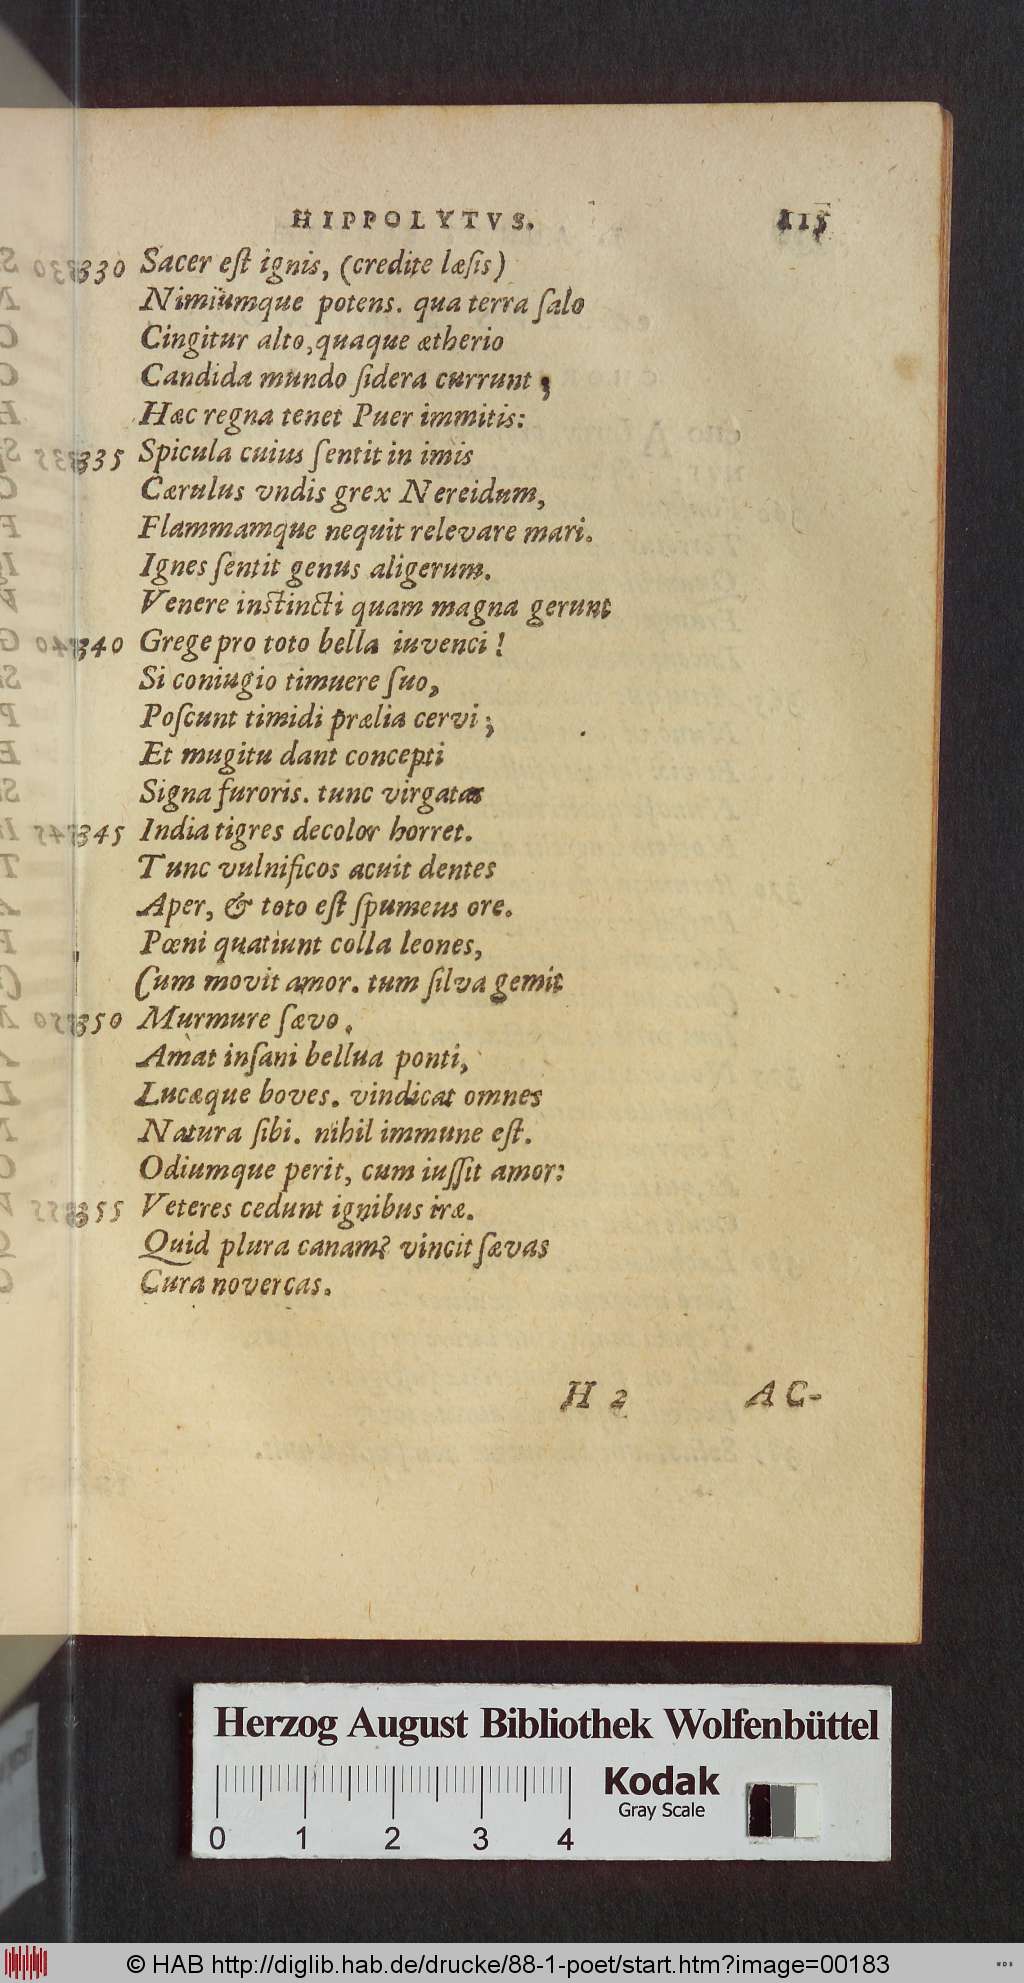 HIPPOLYTVS. 115
330 Sacer eſt ignis, (credite læſis)
Nimiumque potens. qua terra ſalo
Cingitur alto, quaque ætherio
Candida mundo ſidera currunt;
Hæc regna tenet Puer immitis:
335 Spicula cuius ſentit in imis
Cærulus vndis grex Nereidum,
Flammamque nequit relevare mari.
Ignes ſentit genus aligerum.
Venere inſtincti quam magna gerunt
340 Grege pro toto bella iuvenci!
Si coniugio timuere ſuo,
Poſcunt timidi prælia cervi;
Et mugitu dant concepti
Signa furoris. tunc virgatas
345 India tigres decolor horret.
Tunc vulnificos acuit dentes
Aper, & toto eſt ſpumeus ore.
Pœni quatiunt colla leones,
Cum movit amor. tum ſilva gemit
350 Murmure ſævo.
Amat inſani bellua ponti,
Lucæque boves. vindicat omnes
Natura ſibi. nihil immune eſt.
Odiumque perit, cum iuſſit amor:
355 Veteres cedunt ignibus iræ.
Quid plura canam? vincit ſævas
Cura novercas.
H 2 AC-
Herzog August Bibliothek Wolfenbüttel
Kodak
Gray Scale
0 1 2 3 4
© HAB http://diglib.hab.de/drucke/88-1-poet/start.htm?image=00183